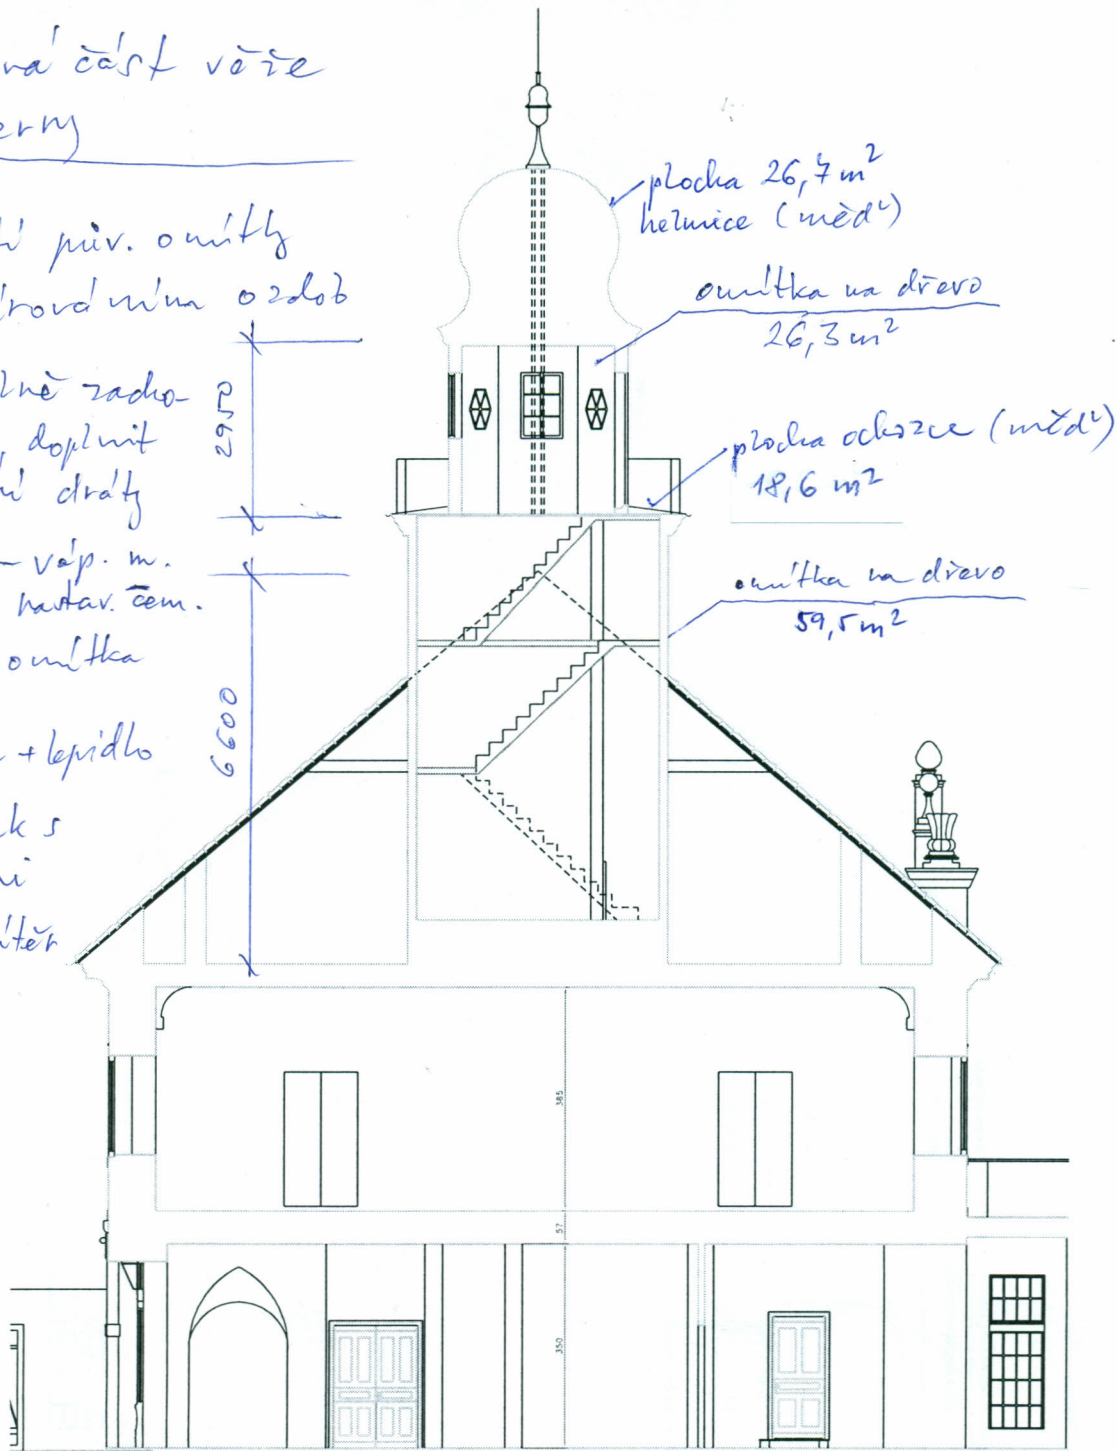 ná část věže
erny
tí pův. omítky
ozdob
lně zacho-
, doplnit
ní dráty
- váp. m.
nastav. cem.
omítka
+ lepidlo
k s
ni
átěr
2950
6600
plocha 26,7 m²
helmice (měď)
omítka na dřevo
26,3 m²
plocha ochozce (měď)
18,6 m²
omítka na dřevo
59,5 m²
385
57
350